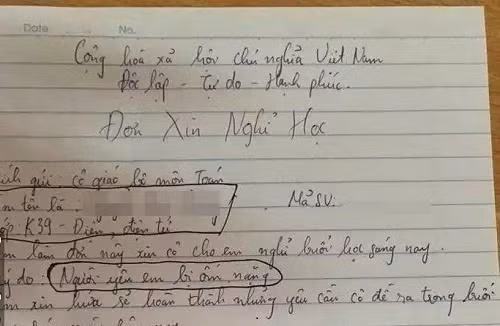 Date No.
Cộng hoà xã hội chủ nghĩa Việt Nam
Độc lập - tự do - Hạnh phúc.
Đơn Xin Nghỉ Học
ính gửi: cô giáo bộ môn Toán
m tên là Mã SV:
ớp K39 - Điện, điện tử
m làm đơn này xin cô cho em nghỉ buổi học sáng nay.
ý do: Người yêu em bị ốm nặng
m xin hứa sẽ hoàn thành những yêu cầu cô đề ra trong buổi